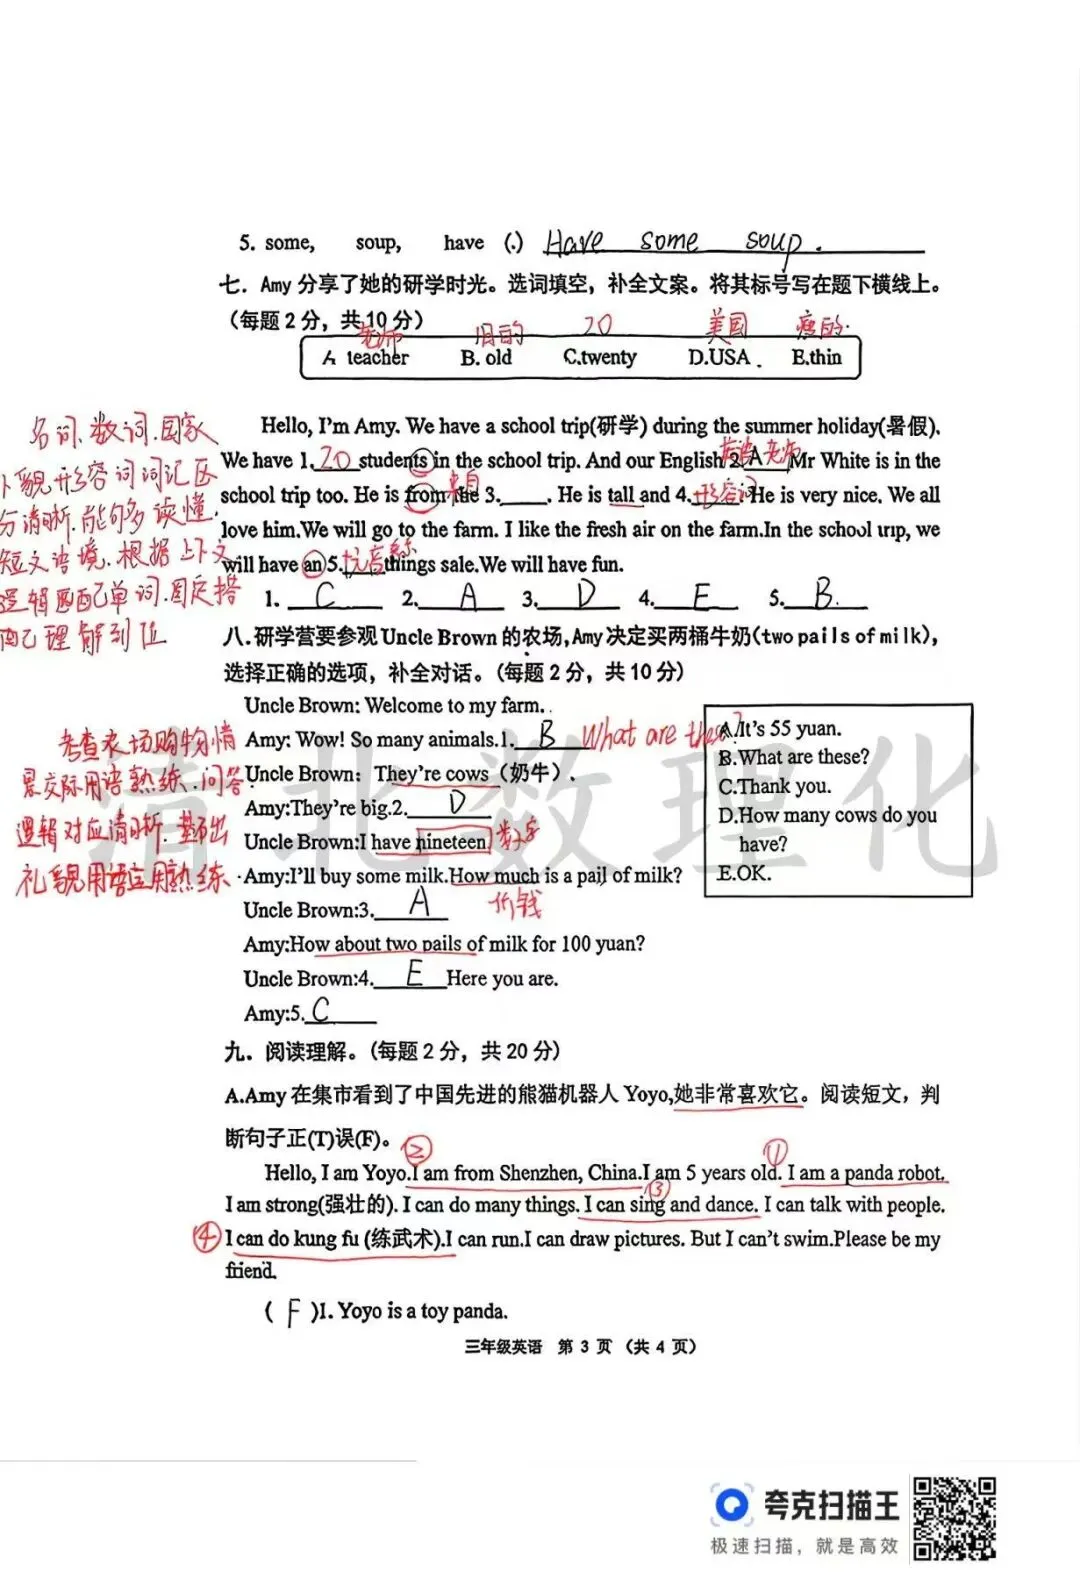 5. some, soup, have (.) Have some soup.
七. Amy 分享了她的研学时光。选词填空，补全文案。将其标号写在题下横线上。
（每题 2 分，共 10 分）
老师 旧的 20 美国 瘦的.
A teacher B. old C.twenty D.USA . E.thin
名词、数词、国家
外貌形容词词汇区
分清晰.能够多读懂.
短文语境.根据上下文
逻辑匹配单词.固定搭
配理解到位
Hello, I'm Amy. We have a school trip(研学) during the summer holiday(暑假).
We have 1. 20 students in the school trip. And our English 2. A 老师 Mr White is in the
school trip too. He is from the 来自 3.____. He is tall and 4. 形容词 He is very nice. We all
love him.We will go to the farm. I like the fresh air on the farm.In the school trip, we
will have an 5.____things sale.We will have fun.
1. C 2. A 3. D 4. E 5. B.
八.研学营要参观Uncle Brown 的农场,Amy 决定买两桶牛奶(two pails of milk),
选择正确的选项，补全对话。（每题 2 分，共 10 分）
Uncle Brown: Welcome to my farm.
Amy: Wow! So many animals.1. B What are these?
Uncle Brown: They're cows（奶牛）.
Amy:They're big.2. D
Uncle Brown:I have nineteen. 数字
Amy:I'll buy some milk.How much is a pail of milk?
Uncle Brown:3. A 价钱
Amy:How about two pails of milk for 100 yuan?
Uncle Brown:4. E Here you are.
Amy:5. C
A.It's 55 yuan.
B.What are these?
C.Thank you.
D.How many cows do you
have?
E.OK.
考查农场购物情
景交际用语熟练.问答
逻辑对应清晰.
礼貌用语应用熟练.
清北数理化
九. 阅读理解。（每题 2 分，共 20 分）
A.Amy 在集市看到了中国先进的熊猫机器人 Yoyo,她非常喜欢它。阅读短文，判
断句子正(T)误(F)。
② ①
Hello, I am Yoyo.I am from Shenzhen, China.I am 5 years old. I am a panda robot.
③
I am strong(强壮的). I can do many things. I can sing and dance. I can talk with people.
④ I can do kung fu (练武术).I can run.I can draw pictures. But I can't swim.Please be my
friend.
( F )1. Yoyo is a toy panda.
三年级英语 第 3 页 （共 4 页）
夸克扫描王
极速扫描，就是高效